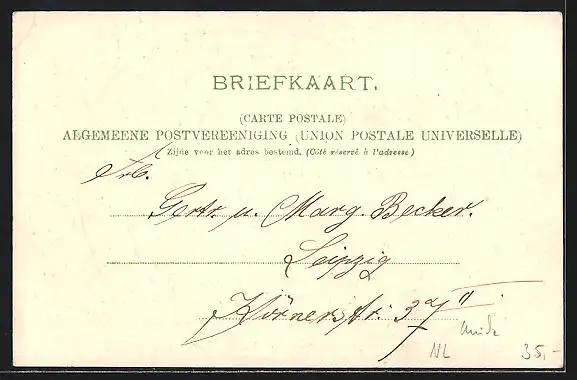 BRIEFKAART.
(CARTE POSTALE)
ALGEMEENE POSTVEREENIGING (UNION POSTALE UNIVERSELLE)
Zijde voor het adres bestemd. (Côté réservé à l'adresse)
Frl.
Gertr. u. Marg. Becker.
Leipzig
Körnerstr. 37 II.
NL
35,-